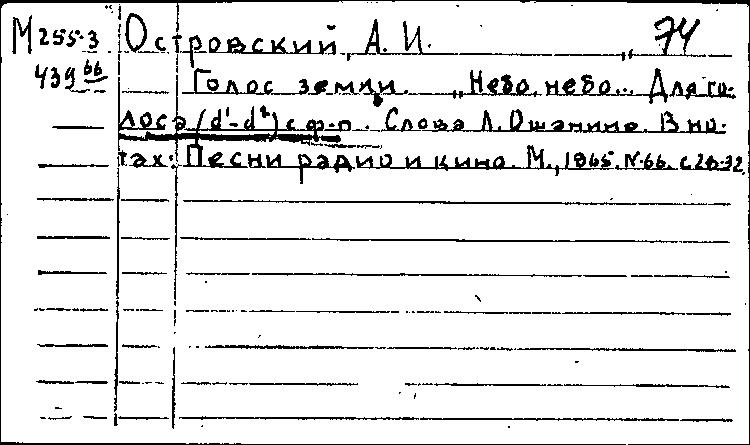 М 255-3 Островский, А. И. „ 74
439 66 Голос земли. „Небо, небо... Для го-
лоса (d¹-d²) с ф-п. Слова Л. Ошанина. В но-
тах: Песни радио и кино. М., 1965. N. 66. с 28-32